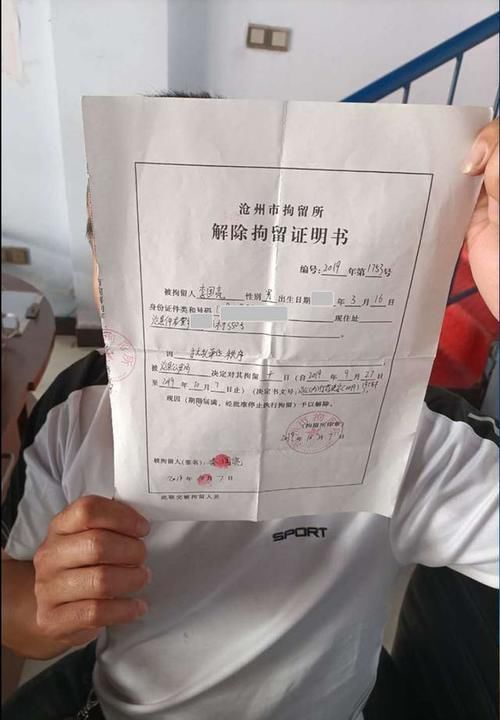 沧州市拘留所
解除拘留证明书
编号：2019年第1783号
被拘留人 李国亮 性别 男 出生日期 年 3 月 16 日
身份证件类和号码 现住址
村550号
因 扰乱单位秩序
被 决定对其拘留 十 日（自 2019 年 9 月 27 日
至 2019 年 10 月 7 日止）（决定书文号：
现因（期限届满，经批准停止执行拘留）予以解除。
（拘留所印章）
2019年10月7日
被拘留人（签名）：李国亮
2019 年 10 月 7 日
此联交被拘留人员
SPORT